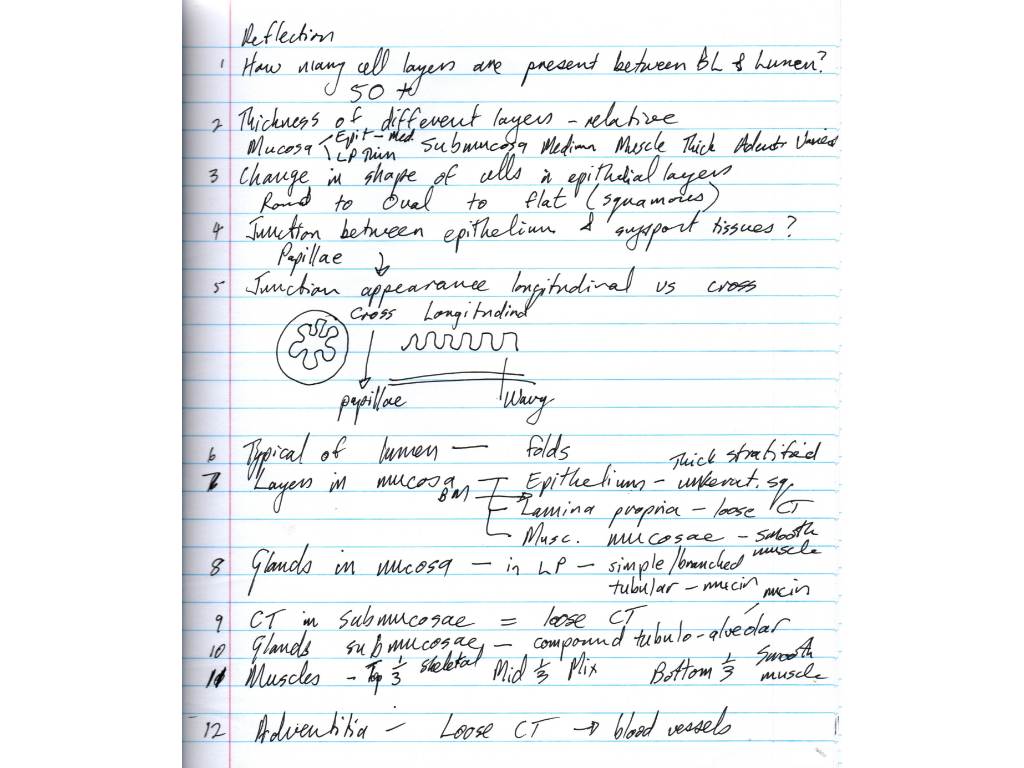 Reflection
1 How many cell layers are present between BL & Lumen?
50 +
2 Thickness of different layers - relative
Mucosa < Epit - med. LP Thin Submucosa Medium Muscle Thick Advent Varies
3 Change in shape of cells in epithelial layers
Round to Oval to flat (squamous)
4 Junction between epithelium & support tissues?
Papillae
5 Junction appearance longitudinal vs cross
Cross Longitudinal
papillae Wavy
6 Typical of lumen — folds
7 Layers in mucosa - Epithelium - Thick stratified unkerat. sq.
BM
Lamina propria - loose CT
Musc. mucosae - smooth muscle
8 Glands in mucosa - in LP - simple/branched
tubular - mucin
mucin
9 CT in submucosae = loose CT
10 Glands submucosae - compound tubulo-alveolar
11 Muscles - Top 1/3 skeletal Mid 1/3 Mix Bottom 1/3 Smooth muscle
12 Adventitia - Loose CT → blood vessels